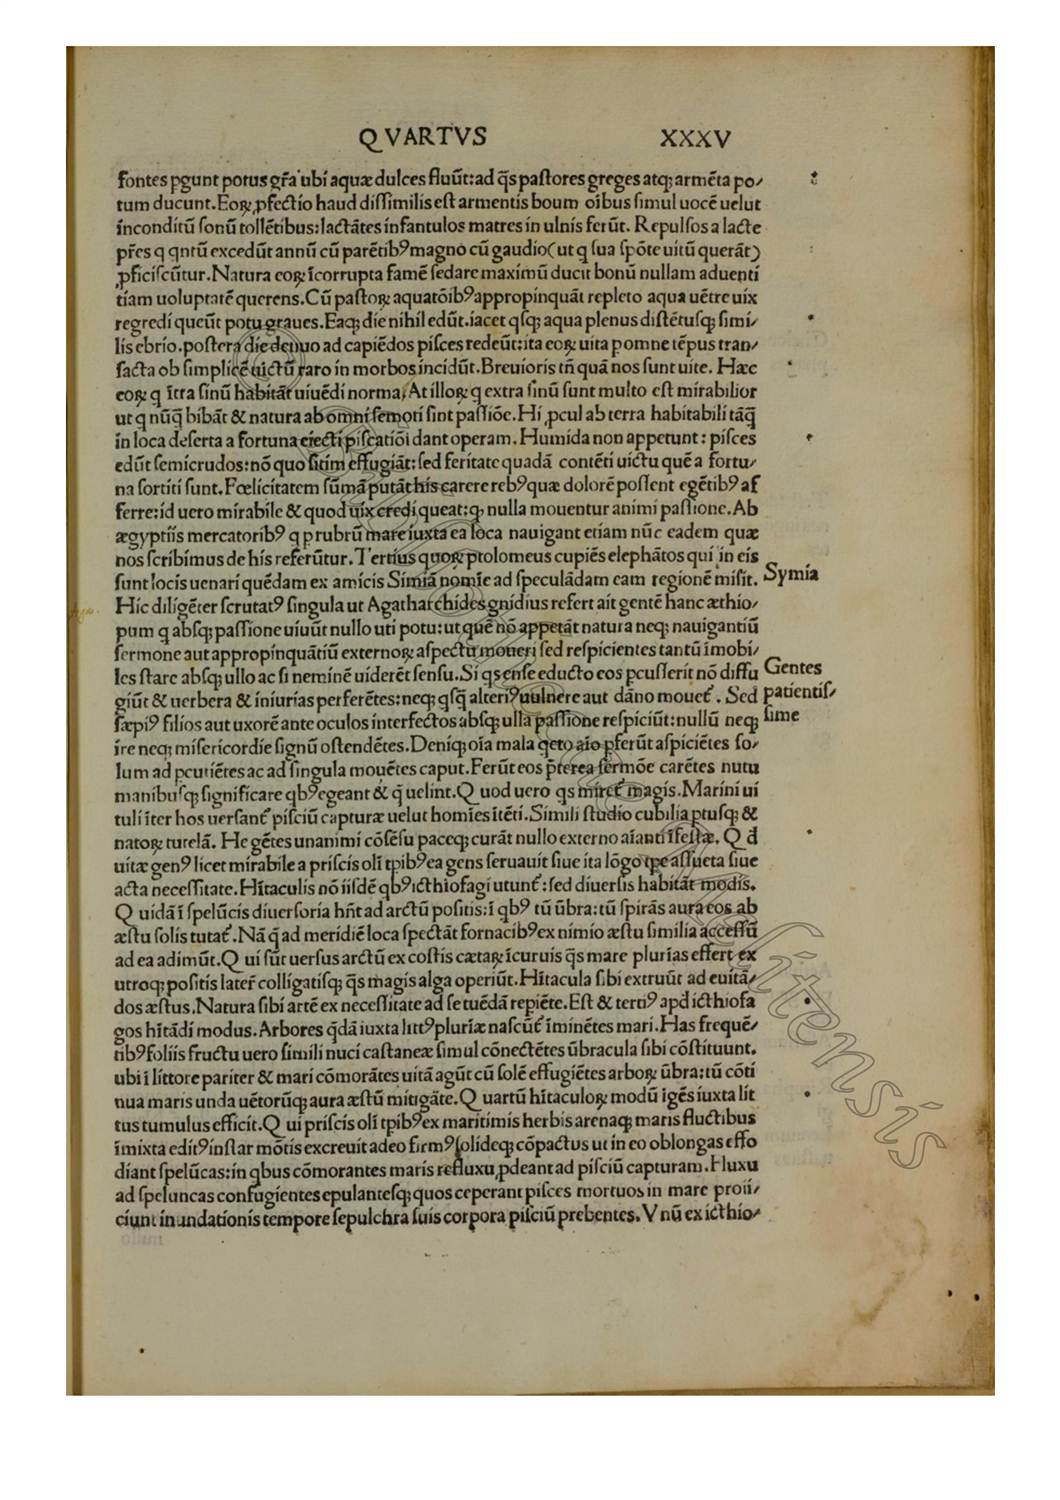 QVARTVS XXXV
fontes pgunt potus gr̃a ubi aquæ dulces fluũt: ad q̃s pastores greges atq; armẽta po/
tum ducunt. Eoꝝ ꝓfectio haud dissimilis est armentis boum oĩbus simul uocẽ uelut
inconditũ sonũ tollẽtibus: lactãtes infantulos matres in ulnis ferũt. Repulsos a lacte
pr̃es q qntũ excedũt annũ cũ parẽtibꝰ magno cũ gaudio (ut q sua spõte uitũ querãt)
ꝓficiscũtur. Natura eoꝝ ĩcorrupta famẽ sedare maximũ ducit bonũ nullam aduenti
tiam uoluptatẽ querens. Cũ pastoꝝ aquatõibꝰ appropinquãt repleto aqua uẽtre uix
regredi queũt potu graues. Eaq; die nihil edũt. iacet qsq; aqua plenus distẽtusq; simi/
lis ebrio. postera die denuo ad capiẽdos pisces redeũt: ita eoꝝ uita pomne tẽpus tran/
sacta ob simplicẽ uictũ raro in morbos incidũt. Breuioris tñ quã nos sunt uite. Hæc
eoꝝ q ĩtra sinũ habitãt uiuẽdi norma. At illoꝝ q extra sinũ sunt multo est mirabilior
ut q nũq̃ bibãt & natura ab omni semoti sint passiõe. Hi ꝓcul ab terra habitabili tãq̃
in loca deserta a fortuna eiecti piscatiõi dant operam. Humida non appetunt: pisces
edũt semicrudos: nõ quo sitim effugiãt: sed feritate quadã contẽti uictu quẽ a fortu/
na sortiti sunt. Fœlicitatem sũmã putãt his carere rebꝰ quæ dolorẽ possent egẽtibꝰ af
ferre: id uero mirabile & quod uix credi queat: q; nulla mouentur animi passione. Ab
ægyptiis mercatoribꝰ q p rubrũ mare iuxta ea loca nauigant etiam nũc eadem quæ
nos scribimus de his referũtur. Tertius quoꝝ ptolomeus cupiẽs elephãtos qui in eis
sunt locis uenari quẽdam ex amicis Simiã nomĩe ad speculãdam eam regionẽ misit. Symia
Hic diligẽter scrutatꝰ singula ut Agathat chides gnidius refert ait gentẽ hanc æthio/
pum q absq; passione uiuũt nullo uti potu: ut quẽ nõ appetãt natura neq; nauigantiũ
sermone aut appropinquãtiũ externoꝝ aspectu moueri sed respicientes tantũ imobi/
les stare absq; ullo ac si neminẽ uiderẽt sensu. Si qs ense educto eos pcusserit nõ diffu Gentes
giũt & uerbera & iniurias perferẽtes: neq; qsq̃ alteriꝰ uulnere aut dãno mouet᷑. Sed patientis/
sæpiꝰ filios aut uxorẽ ante oculos interfectos absq; ulla passione respiciũt: nullũ neq; sime
ire neq; misericordie signũ ostendẽtes. Deniq; oĩa mala qeto aĩo pferũt aspiciẽtes so/
lum ad pcutiẽtes ac ad singula mouẽtes caput. Ferũt eos p̃terea sermõe carẽtes nutu
manibusq; significare qbꝰ egeant & q̃ uelint. Q uod uero qs miret᷑ magis. Marini ui
tuli ĩter hos uersant᷑ pisciũ capturæ uelut homĩes ĩtẽti. Simili studio cubilia ptusq; &
natoꝝ tutelã. He gẽtes unanimi cõsẽsu paceq; curãt nullo externo aĩanti ĩfestæ. Q d̃
uitæ genꝰ licet mirabile a priscis oli tpibꝰ ea gens seruauit siue ita lõgo tpe assueta siue
acta necessitate. Hĩtaculis nõ iisdẽ qbꝰ icthiofagi utunt᷑: sed diuersis habitãt modis.
Q uidã ĩ spelũcis diuersoria hñt ad arctũ positis: ĩ qbꝰ tũ ũbra: tũ spirãs aura eos ab
æstu solis tutat᷑. Nã q̃ ad meridiẽ loca spectãt fornacibꝰ ex nimio æstu similia accessũ
ad ea adimũt. Q ui sũt uersus arctũ ex costis cætaꝝ ĩcuruis q̃s mare plurias effert ex
utroq; positis later᷑ colligatisq; q̃s magis alga operiũt. Hĩtacula sibi extruũt ad euitã/
dos æstus. Natura sibi artẽ ex necessitate ad se tuẽdã repiẽte. Est & tertiꝰ apd icthiofa
gos hĩtãdi modus. Arbores q̃dã iuxta littꝰ pluriæ nascũt᷑ ĩminẽtes mari. Has frequẽ/
tibꝰ foliis fructu uero simili nuci castaneæ simul cõnectẽtes ũbracula sibi cõstituunt.
ubi ĩ littore pariter & mari cõmorãtes uitã agũt cũ solẽ effugiẽtes arboꝝ ũbra: tũ cõti
nua maris unda uẽtorũq; aura æstũ mitigãte. Q uartũ hĩtaculoꝝ modũ igẽs iuxta lit
tus tumulus efficit. Q ui priscis oli tpibꝰ ex maritimis herbis arenaq; maris fluctibus
ĩmixta editꝰ instar mõtis excreuit adeo firmꝰ solideq; cõpactus ut in eo oblongas effo
diant spelũcas: in qbus cõmorantes maris refluxu ꝓdeant ad pisciũ capturam. Fluxu
ad speluncas confugientes epulantesq; quos ceperant pisces mortuos in mare proii/
ciunt inundationis tempore sepulchra suis corpora pisciũ prebentes. V nũ ex icthio/